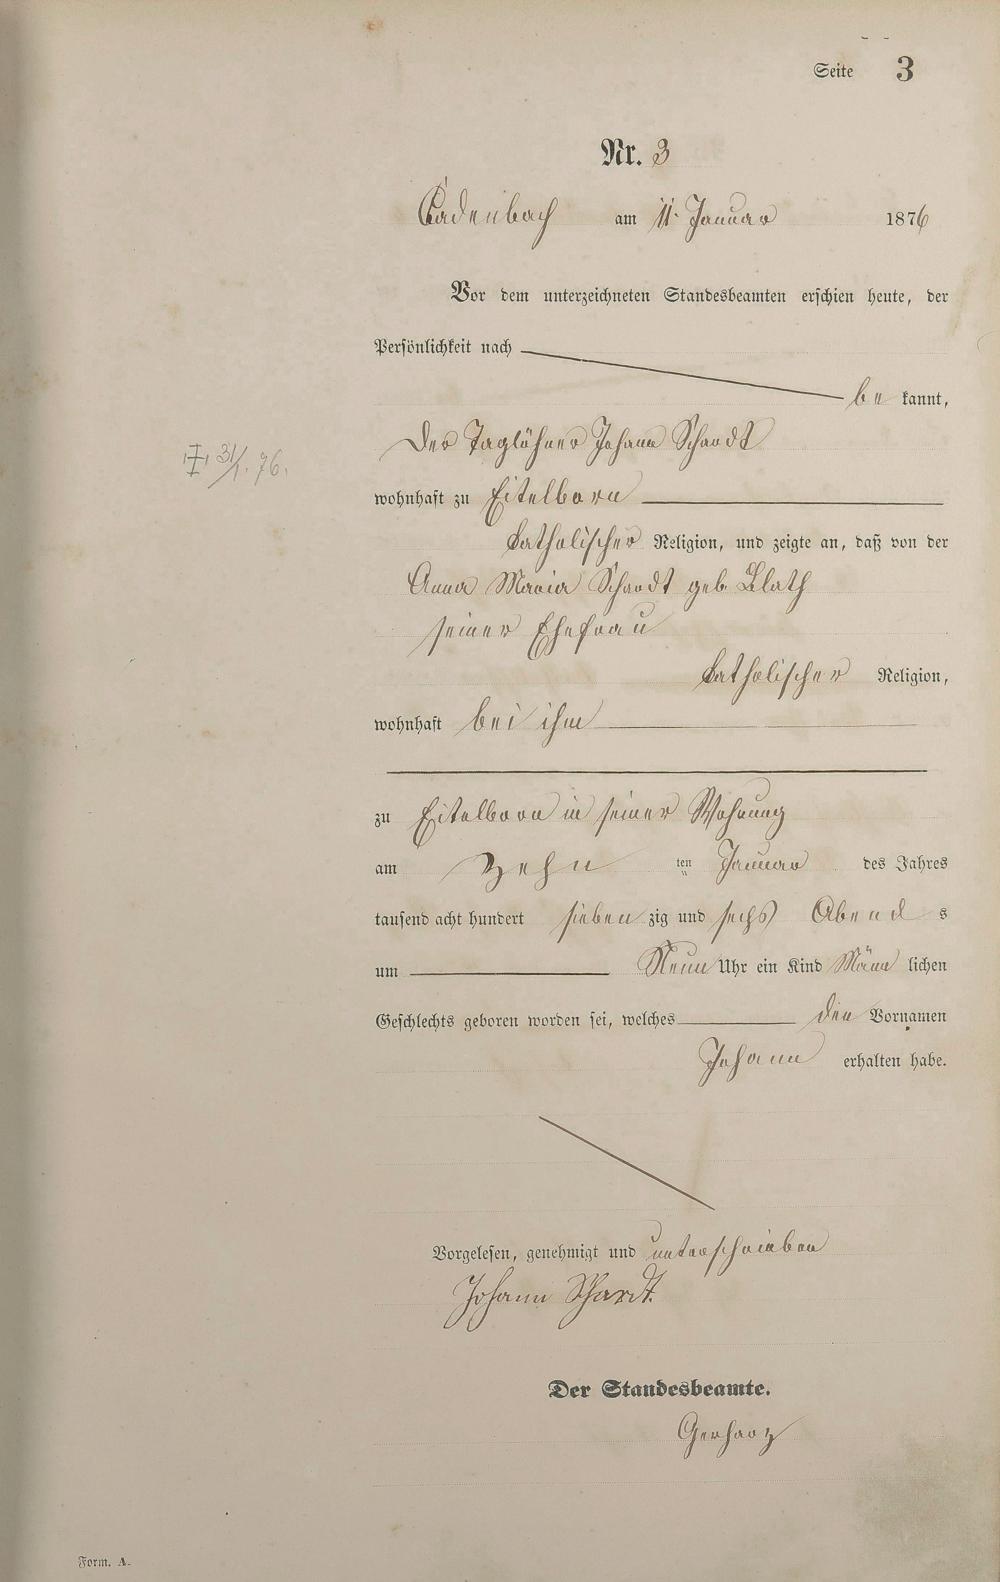 Seite 3
Nr. 3
Cadenbach am 11. Januar 1876
Vor dem unterzeichneten Standesbeamten erschien heute, der
Persönlichkeit nach
be kannt,
Der Taglöhner Johann Schardt
‡ 31/1. 76.
wohnhaft zu Eitelborn
katholischer Religion, und zeigte an, daß von der
Anna Maria Schardt geb.
seiner Ehefrau
katholischer Religion,
wohnhaft bei ihm
zu Eitelborn in seiner Wohnung
am zehn ten Januar des Jahres
tausend acht hundert sieben zig und sechs Abend s
um Neun Uhr ein Kind Männ lichen
Geschlechts geboren worden sei, welches den Vornamen
Johann erhalten habe.
Vorgelesen, genehmigt und unterschrieben
Johann Schardt.
Der Standesbeamte.
Gerharz
Form. A.